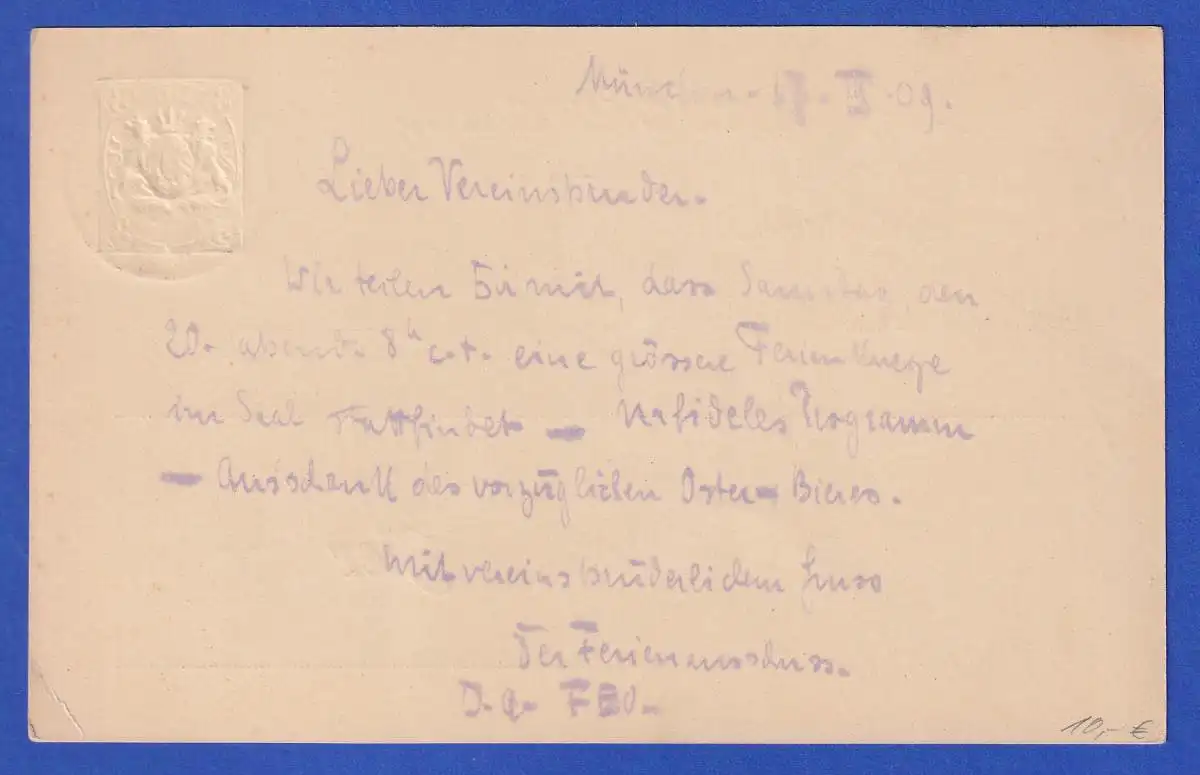 München. 17. III. 09.
Lieber Vereinsbruder.
Wir teilen Dir mit, dass Samstag, den
20. abends 8h c.t. eine grössere Ferienkneipe
im Saal stattfindet —
Urfideles Programm
— Ausschank des vorzüglichen Oster-Bieres.
Mit vereinsbrüderlichem Gruss
Der Ferienausschuss.
10,- €